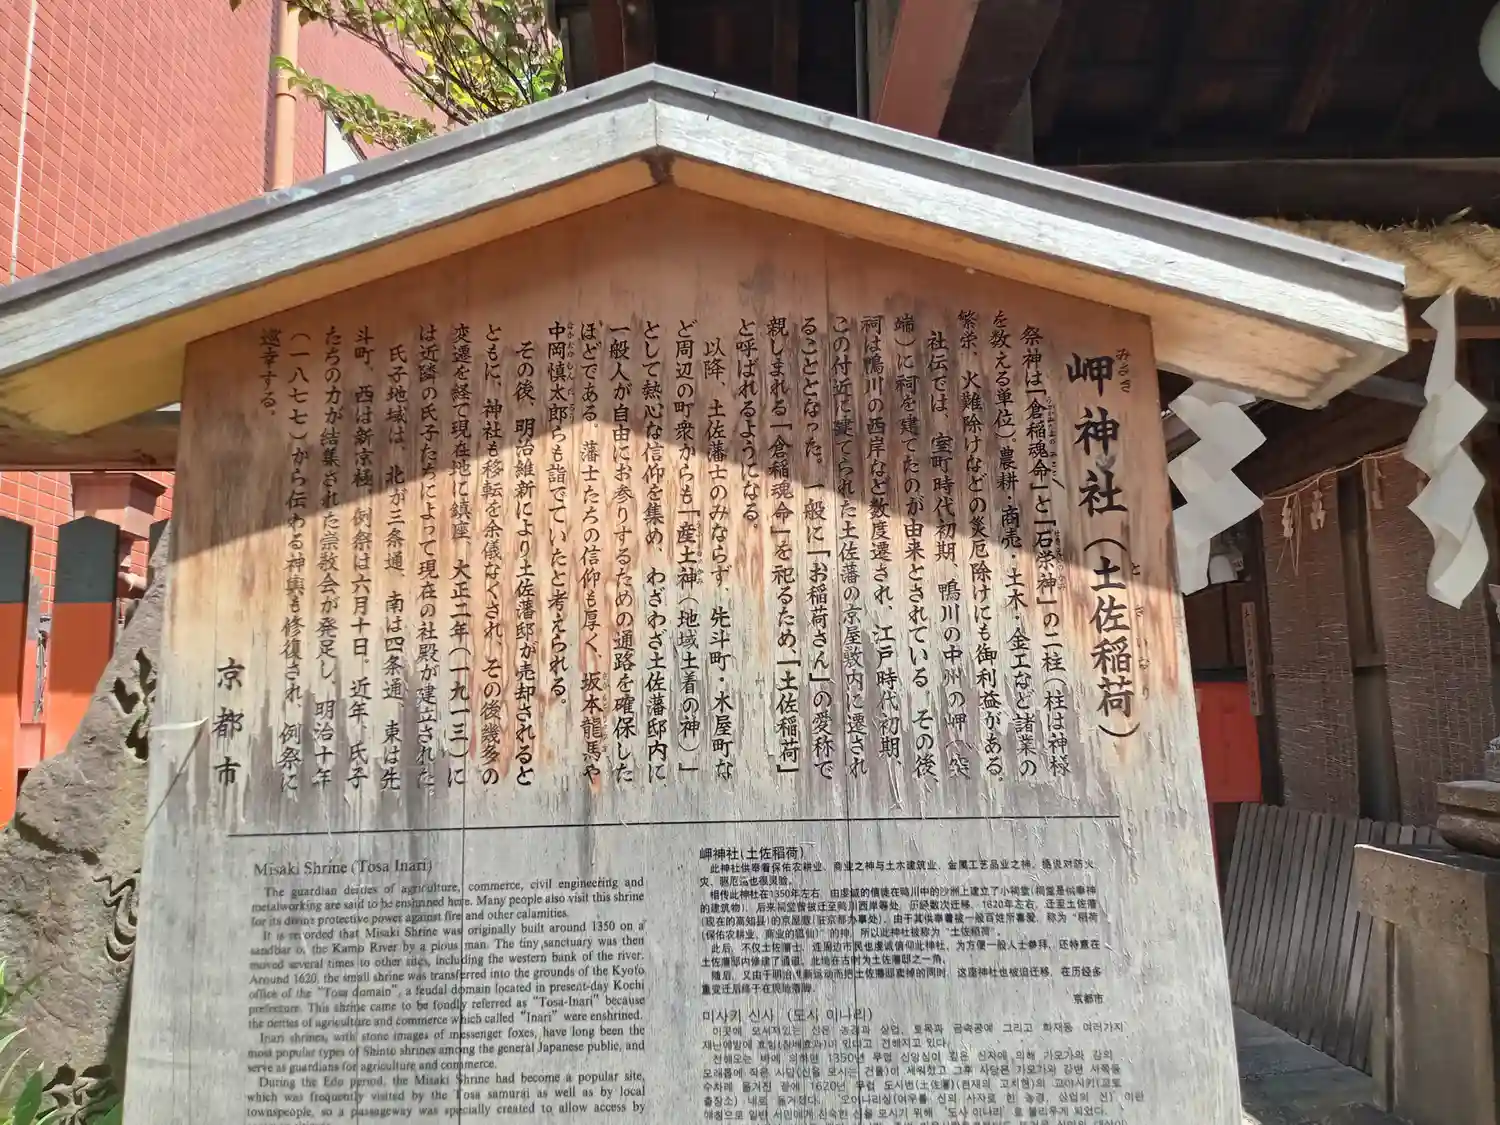 岬神社（土佐稲荷）
みさき
とさいなり
祭神は「倉稲魂命」と「石栄神」の二柱（柱は神様
を数える単位）。農耕・商売・土木・金工など諸業の
繁栄、火難除けなどの災厄除けにも御利益がある。
社伝では、室町時代初期、鴨川の中州の岬（突
端）に祠を建てたのが由来とされている。その後、
祠は鴨川の西岸など数度遷され、江戸時代初期、
この付近に建てられた土佐藩の京屋敷内に遷され
ることとなった。一般に「お稲荷さん」の愛称で
親しまれる「倉稲魂命」を祀るため、「土佐稲荷」
と呼ばれるようになる。
以降、土佐藩士のみならず、先斗町・木屋町な
ど周辺の町衆からも「産土神（地域土着の神）」
として熱心な信仰を集め、わざわざ土佐藩邸内に
一般人が自由にお参りするための通路を確保した
ほどである。藩士たちの信仰も厚く、坂本龍馬や
中岡慎太郎らも詣でていたと考えられる。
その後、明治維新により土佐藩邸が売却されると
ともに、神社も移転を余儀なくされ、その後幾多の
変遷を経て現在地に鎮座、大正二年（一九一三）に
は近隣の氏子たちによって現在の社殿が建立された。
氏子地域は、北が三条通、南は四条通、東は先
斗町、西は新京極。例祭は六月十日。近年、氏子
たちの力が結集された宗教会が発足し、明治十年
（一八七七）から伝わる神輿も修復され、例祭に
巡幸する。
京都市
Misaki Shrine (Tosa Inari)
The guardian deities of agriculture, commerce, civil engineering and
metalworking are said to be enshrined here. Many people also visit this shrine
for its divine protective power against fire and other calamities.
It is recorded that Misaki Shrine was originally built around 1350 on a
sandbar of the Kamo River by a pious man. The tiny sanctuary was then
moved several times to other sites, including the western bank of the river.
Around 1620, the small shrine was transferred into the grounds of the Kyoto
office of the "Tosa domain", a feudal domain located in present-day Kochi
prefecture. This shrine came to be fondly referred as "Tosa-Inari" because
the deities of agriculture and commerce which called "Inari" were enshrined.
Inari shrines, with stone images of messenger foxes, have long been the
most popular types of Shinto shrines among the general Japanese public, and
serve as guardians for agriculture and commerce.
During the Edo period, the Misaki Shrine had become a popular site,
which was frequently visited by the Tosa samurai as well as by local
townspeople, so a passageway was specially created to allow access by
岬神社（土佐稻荷）
此神社供奉着保佑农耕业、商业之神与土木建筑业、金属工艺品业之神，据说对防火
灾、驱厄运也很灵验。
相传此神社在1350年左右，由虔诚的信徒在鸭川中的沙洲上建立了小祠堂（祠堂是供奉神
的建筑物），后来祠堂曾被迁至鸭川西岸等处，历经数次迁移，1620年左右，迁至土佐藩
(现在的高知县)的京屋敷(驻京都办事处)。由于其供奉着被一般百姓所喜爱，称为"稻荷
(保佑农耕业、商业的狐仙)"的神，所以此神社被称为"土佐稻荷"。
此后，不仅土佐藩士，连周边市民也虔诚信仰此神社，为方便一般人士参拜，还特意在
土佐藩邸内修建了通道，此地在古时为土佐藩邸之一角。
随后，又由于明治维新运动而把土佐藩邸卖掉的同时，这座神社也被迫迁移，在历经多
重变迁后终于在现地落脚。
京都市
미사키 신사 （도사 이나리）
이곳에 모셔져있는 신은 농경과 상업, 토목과 금속공예 그리고 화재등 여러가지
재난예방에 효험(참배효과)이 있다고 전해지고 있다.
전해오는 바에 의하면 1350년 무렵 신앙심이 깊은 신자에 의해 가모가와 강의
모래톱에 작은 사당(신을 모시는 건물)이 세워졌고 그후 사당은 가모가와 강변 서쪽등
수차례 옮겨진 끝에 1620년 무렵 도사번(土佐藩)(현재의 고치현)의 교야시키(교토
출장소) 내로 옮겨졌다. '오이나리상(여우를 신의 사자로 한 농경, 상업의 신)' 이란
애칭으로 일반 서민에게 친숙한 신을 모시기 위해 '도사 이나리' 로 불리우게 되었다.